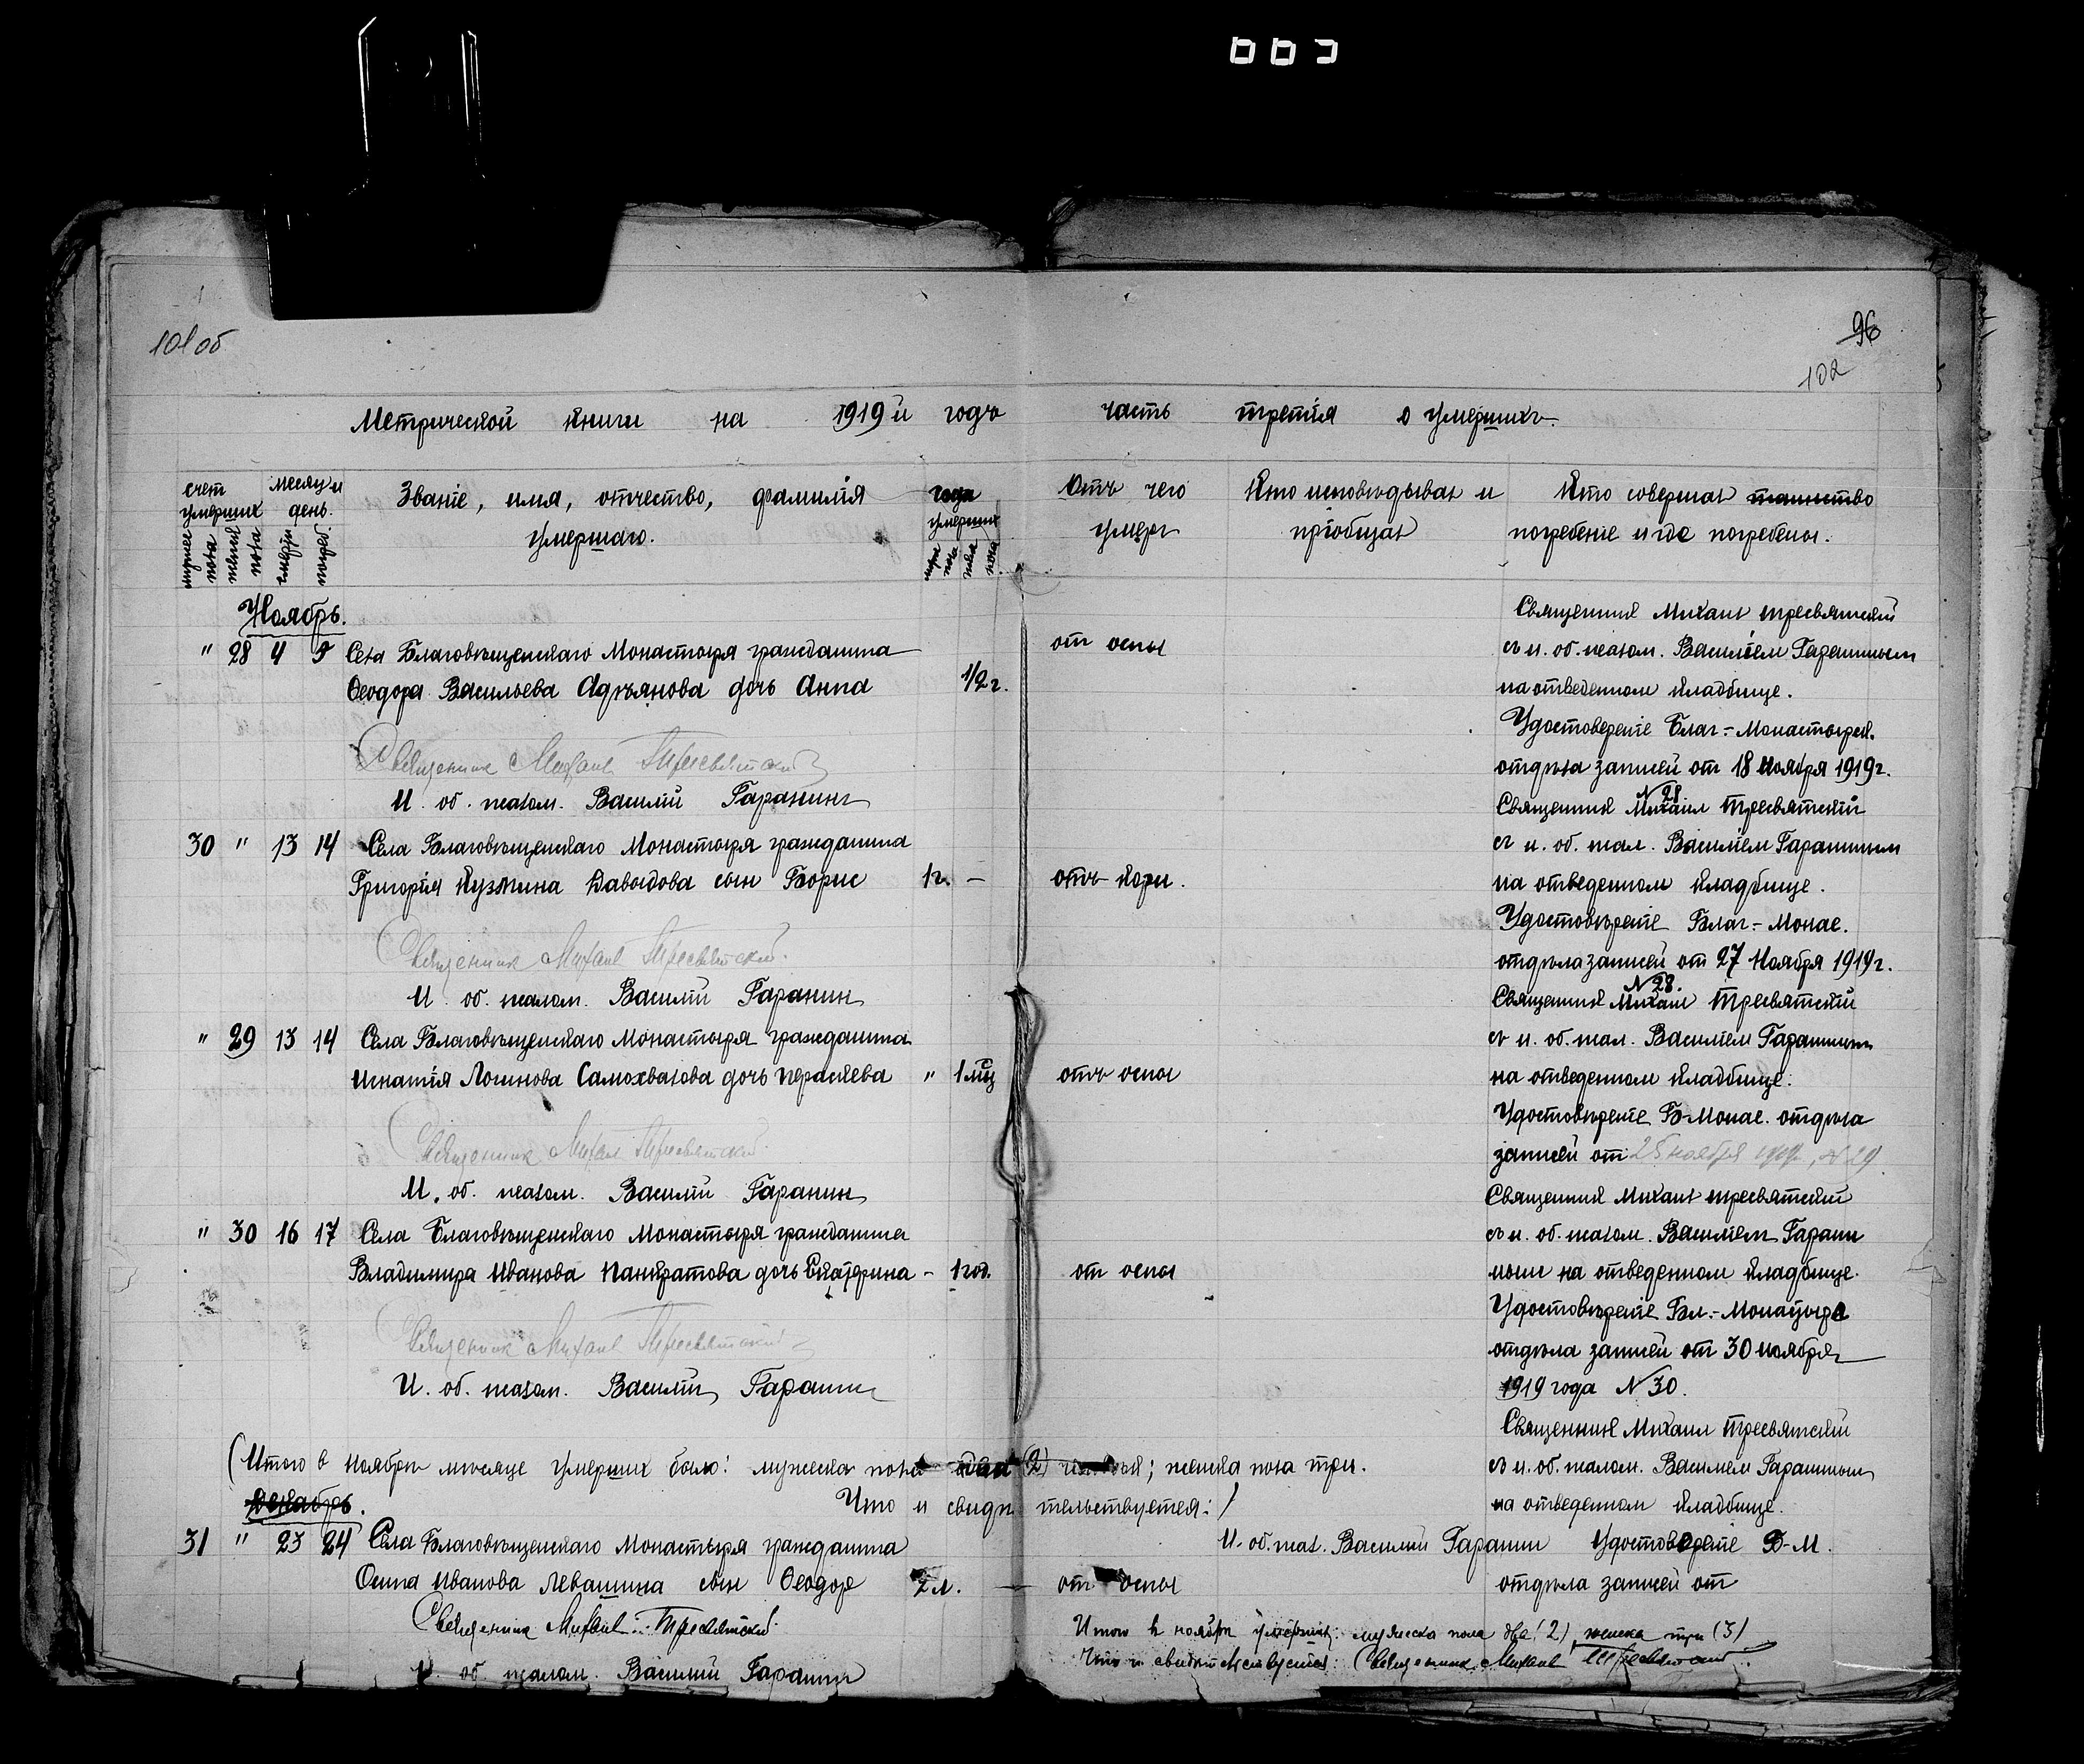 101 об
96
102
Метрической книги на 1919 й годъ часть третiя о умершихъ.
счет умерших
мужеска пола
женска пола
месяц и день.
умерш.
погреб.
Званiе, имя, отчество, фамилiя умершаго.
года умерших
муж. пола
жен. пола
Отъ чего умеръ
Кто исповѣдывал и прiобщал
Кто совершал таинство погребенiе и где погребены.
Ноябрь.
" 28 4 5 Села Благовѣщенскаго Монастыря гражданина
Ѳеодора Васильева Адрьянова дочь Анна 1/2 г.
от оспы
Священник Михаил Тресвятский
съ и. об. псалом. Василiем Гараниным
на отведенном кладбище.
Удостоверенiе Благ.-Монастырск.
отдѣла записей от 18 ноября 1919 г.
N 28
Священник Михаил Тресвятский
И. об. псалом. Василий Гаранинъ
30 " 13 14 Села Благовѣщенскаго Монастыря гражданина
Григорiя Кузмина Давыдова сын Борис 1 г. –
отъ кори.
Священник Михаил Тресвятский
съ и. об. псал. Василiем Гараниным
на отведенном кладбище.
Удостовѣренiе Благ.-Монас.
отдѣла записей от 27 Ноября 1919 г.
N 28.
Священник Михаил Тресвятский.
И. об. псалом. Василий Гаранин
" 29 13 14 Села Благовѣщенскаго Монастыря гражданина
Игнатiя Логинова Самохвалова дочь Параскева " 1 мц
отъ оспы
Священник Михаил Тресвятский
съ и. об. псал. Василием Гараниным
на отведенном кладбище.
Удостовѣренiе Б-Монас. отдѣла
записей от 25 ноября 1919г., N 29
Священник Михаил Тресвятский.
И. об. псалом. Василий Гаранин
" 30 16 17 Села Благовѣщенскаго Монастыря гражданина
Владимира Иванова Панкратова дочь Екатерина – 1 год.
от оспы
Священник Михаил Тресвятский
съ и. об. псалом. Василием Гарани
ным на отведенном кладбище.
Удостовѣренiе Бл.-Монастыря
отдѣла записей от 30 ноября
1919 года N 30.
Священник Михаил Тресвятский
И. об. псалом. Василий Гаранин
(Итого в ноябрѣ месяце умерших было: мужеска пола два (2) ; женска пола три.
Что и свидѣтельствуется:)
И. об. псал. Василий Гаранин
Декабрь.
31 " 23 24 Села Благовѣщенскаго Монастыря гражданина
Осипа Иванова Левашина сын Ѳеодор 2 л. –
от оспы
Священник Михаил Тресвятский
съ и. об. псалом. Василием Гараниным
на отведенном кладбище.
Удостоверенiе Б-М.
отдѣла записей от
Священник Михаил Тресвятский.
И. об. псалом. Василий Гаранин
Итого в ноябрѣ умерших: мужеска пола два (2) женска три (3)
Что и свидѣтельствуется: Священник Михаил Тресвятский.